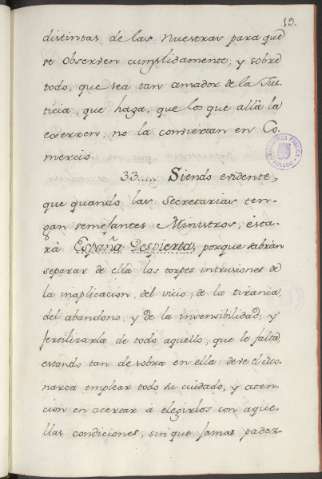 19.
distintas de las nuestras para que
se observen cumplidamente, y sobre
todo, que sea tan amador de la Jus-
ticia, que haga, que los que allà la
exercen, no la conviertan en Co-
mercio.
33..... Siendo evidente,
que quando las Secretarias ten-
gan semejantes Ministros, esta-
rà España Despierta, porque sabràn
separar de ella las torpes intrusiones de
la inaplicacion, del vicio, de la tirania,
del abandono, y de la insensibilidad, y
fertilizarla de todo aquello, que le falta
estando tan de sobra en ella: deve el Mo-
narca emplear todo su cuidado, y aten-
cion en acertar a elegirlos con aque-
llas condiciones, sin que jamas padez-